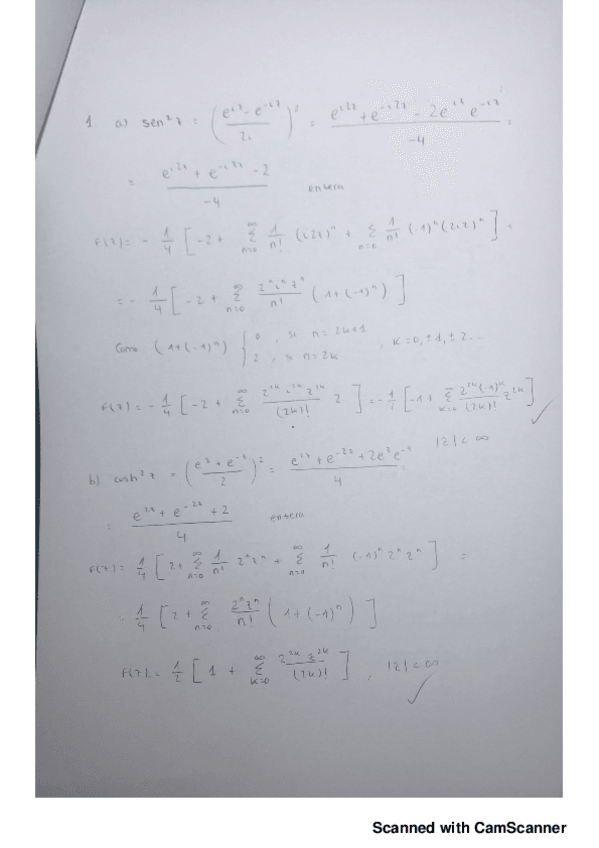 1 a) sen²z = ( (e^{iz} - e^{-iz}) / 2i )² = (e^{i2z} + e^{-i2z} - 2e^{iz} e^{-iz}) / -4 =
= (e^{i2z} + e^{-i2z} - 2) / -4 entera
F(z) = - 1/4 [ -2 + Σ_{n=0}^{∞} 1/n! (i2z)^n + Σ_{n=0}^{∞} 1/n! (-1)^n (2iz)^n ] =
= - 1/4 [ -2 + Σ_{n=0}^{∞} 2^n i^n z^n / n! (1+(-1)^n) ]
Como (1+(-1)^n) { 0, si n=2k+1 ; 2, si n=2k , k=0, ±1, ±2...
F(z) = - 1/4 [ -2 + Σ_{n=0}^{∞} 2^{2k} i^{2k} z^{2k} / (2k)! 2 ] = - 1/2 [ -1 + Σ_{k=0}^{∞} 2^{2k} (-1)^k / (2k)! z^{2k} ] ✓
|z| < ∞
b) cosh²z = ( (e^z + e^{-z}) / 2 )² = (e^{2z} + e^{-2z} + 2e^z e^{-z}) / 4 =
= (e^{2z} + e^{-2z} + 2) / 4 entera
F(z) = 1/4 [ 2 + Σ_{n=0}^{∞} 1/n! 2^n z^n + Σ_{n=0}^{∞} 1/n! (-1)^n 2^n z^n ] =
= 1/4 [ 2 + Σ_{n=0}^{∞} 2^n z^n / n! (1+(-1)^n) ]
F(z) = 1/2 [ 1 + Σ_{k=0}^{∞} 2^{2k} z^{2k} / (2k)! ] , |z| < ∞ ✓
Scanned with CamScanner